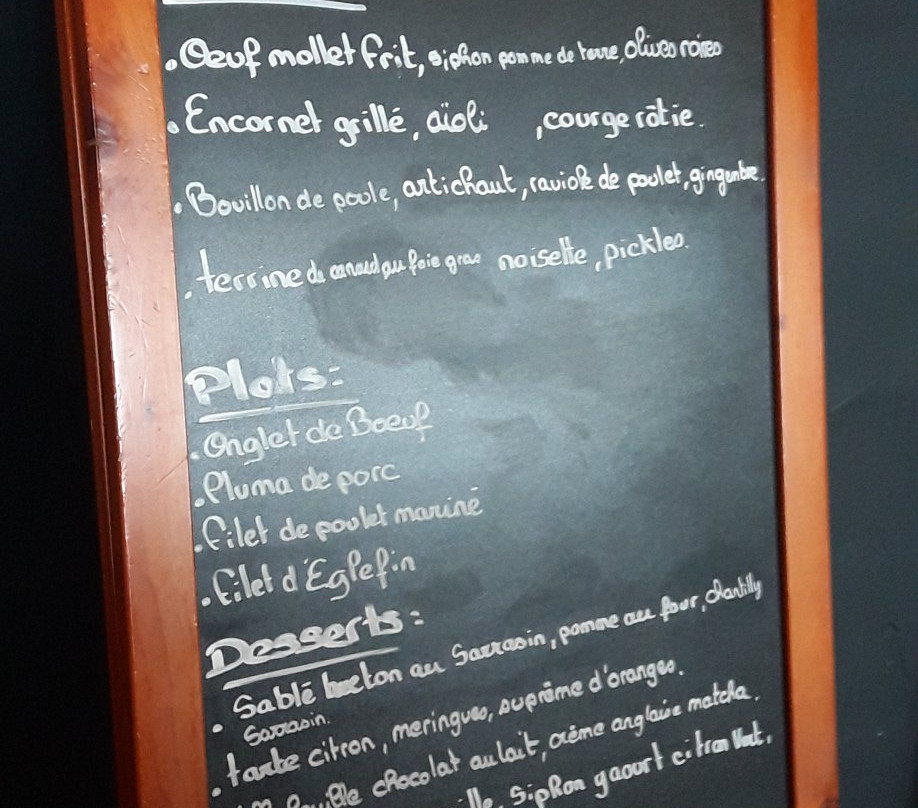 . Oeuf mollet frit, siphon pomme de terre, olives noires
. Encornet grillé, aïoli , courge rôtie.
. Bouillon de poule, artichaut, raviole de poulet, gingembre.
. terrine de canard au foie gras noisette, pickles.
Plats:
. Onglet de Boeuf
. Pluma de porc
. filet de poulet mariné
. filet d'Eglefin
Desserts:
. Sablé breton au Sarrasin, pomme au four, chantilly
Sarrasin.
. tarte citron, meringues, suprême d'oranges.
chocolat au lait, crème anglaise matcha.
Siphon yaourt citron Vert.